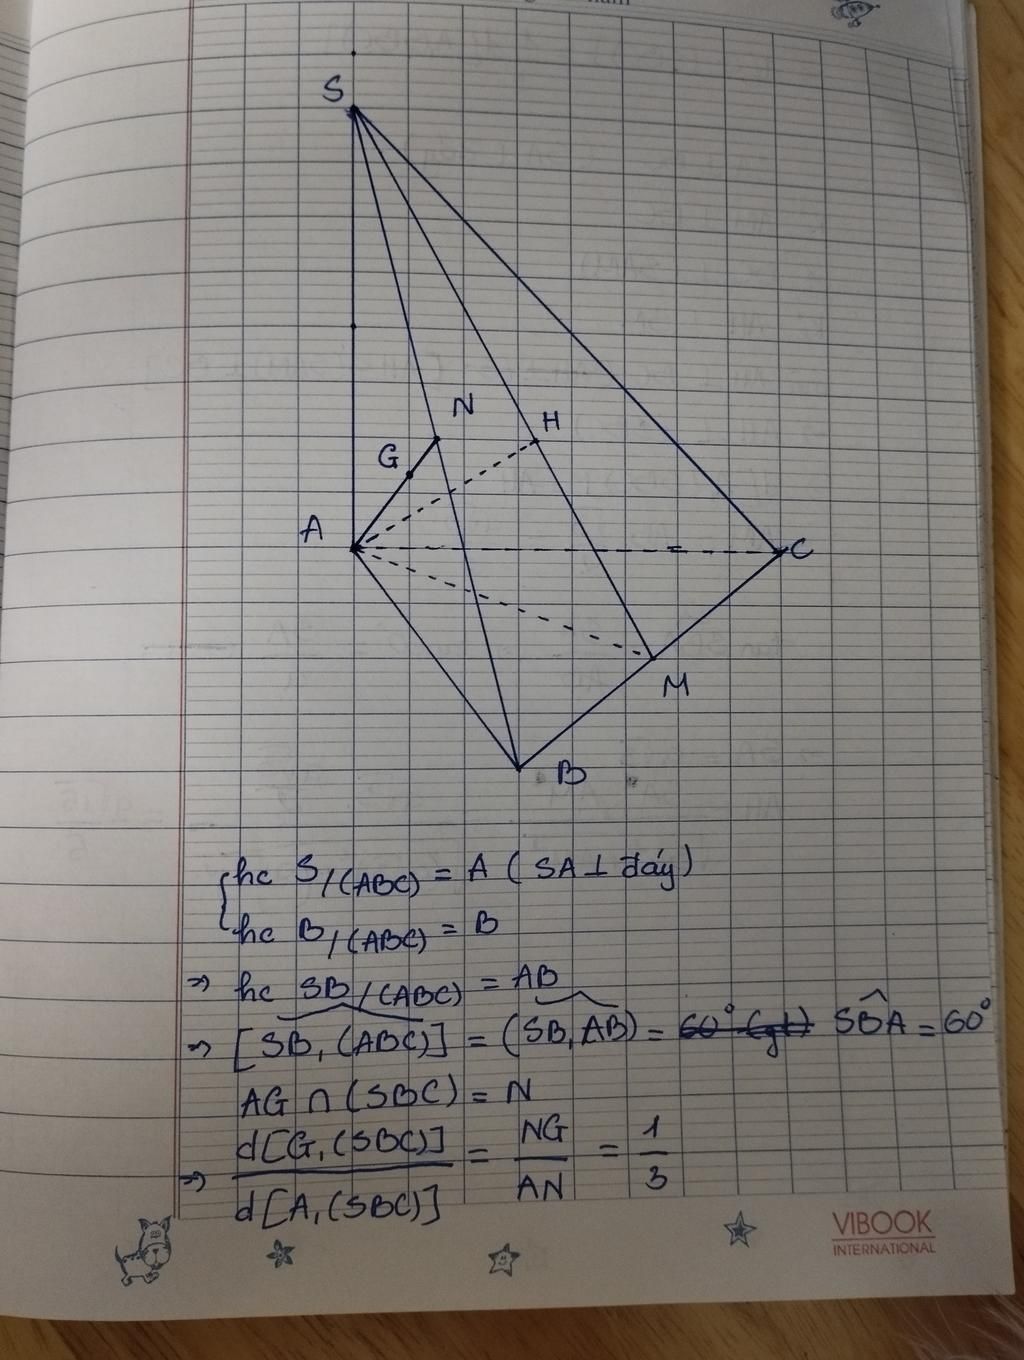 S
N
H
G
A
C
M
B
hc S/(ABC) = A (SA ⊥ đáy)
hc B/(ABC) = B
=> hc SB/(ABC) = AB
=> [SB, (ABC)] = (SB, AB) = 60° (gt) SBA = 60°
AG ∩ (SBC) = N
=> d[G, (SBC)] / d[A, (SBC)] = NG / AN = 1 / 3
VIBOOK
INTERNATIONAL